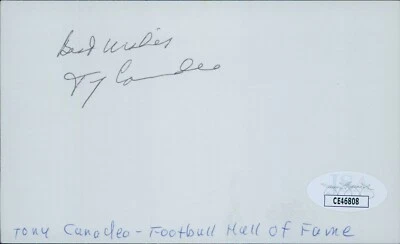 Best Wishes
Tony Canadeo
JSA
CE46808
Tony Canadeo - Football Hall of Fame